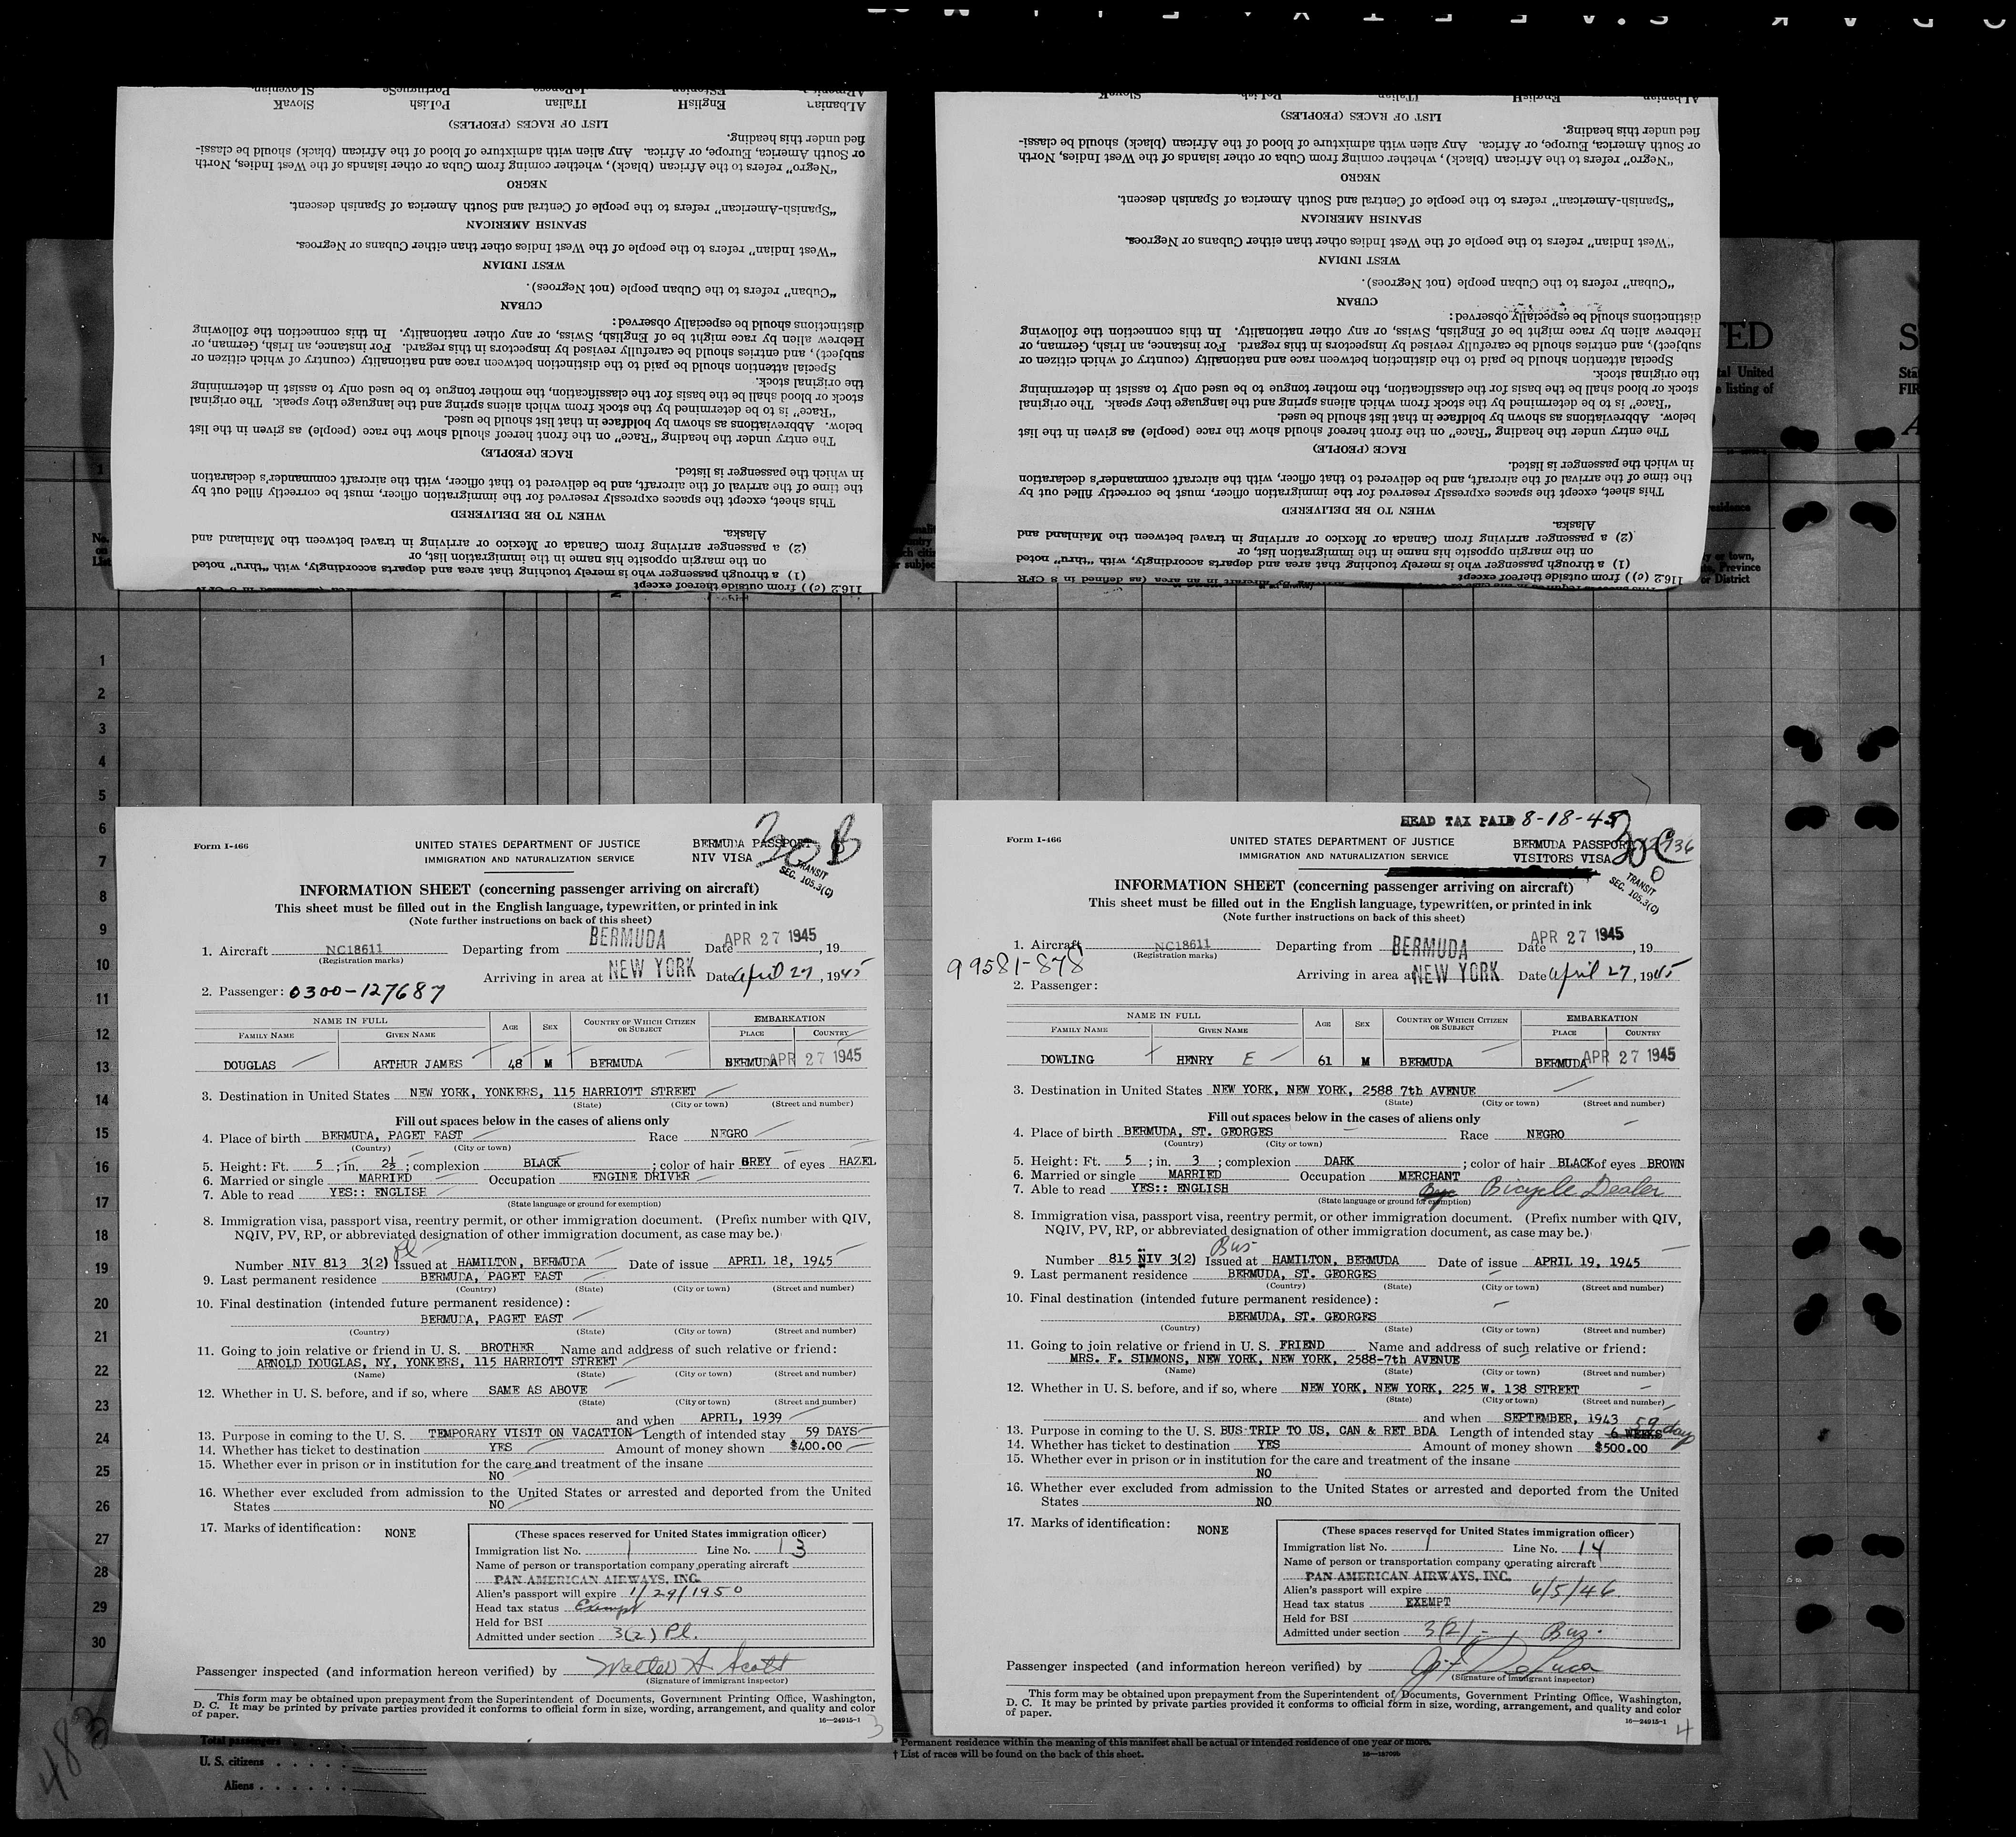 ALBanian EngliSH ITalian PoLish SlovaK
LIST OF RACES (PEOPLES)
fied under this heading.
or South America, Europe, or Africa. Any alien with admixture of blood of the African (black) should be classi-
“Negro” refers to the African (black), whether coming from Cuba or other islands of the West Indies, North
NEGRO
“Spanish-American” refers to the people of Central and South America of Spanish descent.
SPANISH AMERICAN
“West Indian” refers to the people of the West Indies other than either Cubans or Negroes.
WEST INDIAN
“Cuban” refers to the Cuban people (not Negroes).
CUBAN
distinctions should be especially observed:
Hebrew alien by race might be of English, Swiss, or any other nationality. In this connection the following
subject), and entries should be carefully revised by inspectors in this regard. For instance, an Irish, German, or
Special attention should be paid to the distinction between race and nationality (country of which citizen or
the original stock.
stock or blood shall be the basis for the classification, the mother tongue to be used only to assist in determining
“Race” is to be determined by the stock from which aliens spring and the language they speak. The original
below. Abbreviations as shown by boldface in that list should be used.
The entry under the heading “Race” on the front hereof should show the race (people) as given in the list
RACE (PEOPLE)
in which the passenger is listed.
the time of the arrival of the aircraft, and be delivered to that officer, with the aircraft commander's declaration
This sheet, except the spaces expressly reserved for the immigration officer, must be correctly filled out by
WHEN TO BE DELIVERED
Alaska.
(2) a passenger arriving from Canada or Mexico or arriving in travel between the Mainland and
on the margin opposite his name in the immigration list, or
(1) a through passenger who is merely touching that area and departs accordingly, with “thru” noted
116.2 (c)) from outside thereof except
LIST OF RACES (PEOPLES)
fied under this heading.
or South America, Europe, or Africa. Any alien with admixture of blood of the African (black) should be classi-
“Negro” refers to the African (black), whether coming from Cuba or other islands of the West Indies, North
NEGRO
“Spanish-American” refers to the people of Central and South America of Spanish descent.
SPANISH AMERICAN
“West Indian” refers to the people of the West Indies other than either Cubans or Negroes.
WEST INDIAN
“Cuban” refers to the Cuban people (not Negroes).
CUBAN
distinctions should be especially observed:
Hebrew alien by race might be of English, Swiss, or any other nationality. In this connection the following
subject), and entries should be carefully revised by inspectors in this regard. For instance, an Irish, German, or
Special attention should be paid to the distinction between race and nationality (country of which citizen or
the original stock.
stock or blood shall be the basis for the classification, the mother tongue to be used only to assist in determining
“Race” is to be determined by the stock from which aliens spring and the language they speak. The original
below. Abbreviations as shown by boldface in that list should be used.
The entry under the heading “Race” on the front hereof should show the race (people) as given in the list
RACE (PEOPLE)
in which the passenger is listed.
the time of the arrival of the aircraft, and be delivered to that officer, with the aircraft commander's declaration
This sheet, except the spaces expressly reserved for the immigration officer, must be correctly filled out by
WHEN TO BE DELIVERED
Alaska.
(2) a passenger arriving from Canada or Mexico or arriving in travel between the Mainland and
on the margin opposite his name in the immigration list, or
(1) a through passenger who is merely touching that area and departs accordingly, with “thru” noted
116.2 (c)) from outside thereof except
Form I-466
UNITED STATES DEPARTMENT OF JUSTICE BERMUDA PASSPORT 30 B
IMMIGRATION AND NATURALIZATION SERVICE NIV VISA
TRANSIT
SEC. 105.3(C)
INFORMATION SHEET (concerning passenger arriving on aircraft)
This sheet must be filled out in the English language, typewritten, or printed in ink
(Note further instructions on back of this sheet)
1. Aircraft NC18611 Departing from BERMUDA Date APR 27 1945, 19
(Registration marks)
Arriving in area at NEW YORK Date April 27, 1945
2. Passenger: 0300-127687
NAME IN FULL AGE SEX COUNTRY OF WHICH CITIZEN OR SUBJECT EMBARKATION
FAMILY NAME GIVEN NAME PLACE COUNTRY
DOUGLAS ARTHUR JAMES 48 M BERMUDA BERMUDA APR 27 1945
3. Destination in United States NEW YORK, YONKERS, 115 HARRIOTT STREET
(State) (City or town) (Street and number)
Fill out spaces below in the cases of aliens only
4. Place of birth BERMUDA, PAGET EAST Race NEGRO
(Country) (City or town)
5. Height: Ft. 5; in. 2½; complexion BLACK; color of hair GREY of eyes HAZEL
6. Married or single MARRIED Occupation ENGINE DRIVER
7. Able to read YES:: ENGLISH
(State language or ground for exemption)
8. Immigration visa, passport visa, reentry permit, or other immigration document. (Prefix number with QIV,
NQIV, PV, RP, or abbreviated designation of other immigration document, as case may be.)
Pl
Number NIV 813 3(2) Issued at HAMILTON, BERMUDA Date of issue APRIL 18, 1945
9. Last permanent residence BERMUDA, PAGET EAST
(Country) (State) (City or town) (Street and number)
10. Final destination (intended future permanent residence):
BERMUDA, PAGET EAST
(Country) (State) (City or town) (Street and number)
11. Going to join relative or friend in U. S. BROTHER Name and address of such relative or friend:
ARNOLD DOUGLAS, NY, YONKERS, 115 HARRIOTT STREET
(Name) (State) (City or town) (Street and number)
12. Whether in U. S. before, and if so, where SAME AS ABOVE
(State) (City or town) (Street and number)
and when APRIL, 1939
13. Purpose in coming to the U. S. TEMPORARY VISIT ON VACATION Length of intended stay 59 DAYS
14. Whether has ticket to destination YES Amount of money shown $400.00
15. Whether ever in prison or in institution for the care and treatment of the insane
NO
16. Whether ever excluded from admission to the United States or arrested and deported from the United
States NO
17. Marks of identification: NONE
(These spaces reserved for United States immigration officer)
Immigration list No. 1 Line No. 13
Name of person or transportation company operating aircraft
PAN AMERICAN AIRWAYS, INC.
Alien's passport will expire 1/29/1950
Head tax status Exempt
Held for BSI
Admitted under section 3(2) Pl.
Passenger inspected (and information hereon verified) by Walter A. Scott
(Signature of immigrant inspector)
This form may be obtained upon prepayment from the Superintendent of Documents, Government Printing Office, Washington,
D. C. It may be printed by private parties provided it conforms to official form in size, wording, arrangement, and quality and color
of paper.
16—24915-1
3
HEAD TAX PAID 8-18-45
Form I-466
UNITED STATES DEPARTMENT OF JUSTICE BERMUDA PASSPORT 30 C
IMMIGRATION AND NATURALIZATION SERVICE VISITORS VISA
TRANSIT
SEC. 105.3(C)
INFORMATION SHEET (concerning passenger arriving on aircraft)
This sheet must be filled out in the English language, typewritten, or printed in ink
(Note further instructions on back of this sheet)
1. Aircraft NC18611 Departing from BERMUDA Date APR 27 1945, 19
(Registration marks)
99581-878
Arriving in area at NEW YORK Date April 27, 1945
2. Passenger:
NAME IN FULL AGE SEX COUNTRY OF WHICH CITIZEN OR SUBJECT EMBARKATION
FAMILY NAME GIVEN NAME PLACE COUNTRY
DOWLING HENRY E 61 M BERMUDA BERMUDA APR 27 1945
3. Destination in United States NEW YORK, NEW YORK, 2588 7th AVENUE
(State) (City or town) (Street and number)
Fill out spaces below in the cases of aliens only
4. Place of birth BERMUDA, ST. GEORGES Race NEGRO
(Country) (City or town)
5. Height: Ft. 5; in. 3; complexion DARK; color of hair BLACK of eyes BROWN
6. Married or single MARRIED Occupation MERCHANT
7. Able to read YES:: ENGLISH Bicycle Dealer
(State language or ground for exemption)
8. Immigration visa, passport visa, reentry permit, or other immigration document. (Prefix number with QIV,
NQIV, PV, RP, or abbreviated designation of other immigration document, as case may be.)
Bus
Number 815 NIV 3(2) Issued at HAMILTON, BERMUDA Date of issue APRIL 19, 1945
9. Last permanent residence BERMUDA, ST. GEORGES
(Country) (State) (City or town) (Street and number)
10. Final destination (intended future permanent residence):
BERMUDA, ST. GEORGES
(Country) (State) (City or town) (Street and number)
11. Going to join relative or friend in U. S. FRIEND Name and address of such relative or friend:
MRS. F. SIMMONS, NEW YORK, NEW YORK, 2588-7th AVENUE
(Name) (State) (City or town) (Street and number)
12. Whether in U. S. before, and if so, where NEW YORK, NEW YORK, 225 W. 138 STREET
(State) (City or town) (Street and number)
and when SEPTEMBER, 1943
13. Purpose in coming to the U. S. BUS TRIP TO US, CAN & RET BDA Length of intended stay 6 WEEKS 59 days
14. Whether has ticket to destination YES Amount of money shown $500.00
15. Whether ever in prison or in institution for the care and treatment of the insane
NO
16. Whether ever excluded from admission to the United States or arrested and deported from the United
States NO
17. Marks of identification: NONE
(These spaces reserved for United States immigration officer)
Immigration list No. 1 Line No. 14
Name of person or transportation company operating aircraft
PAN AMERICAN AIRWAYS, INC.
Alien's passport will expire 6/5/46
Head tax status EXEMPT
Held for BSI
Admitted under section 3(2) - Bus.
Passenger inspected (and information hereon verified) by
(Signature of immigrant inspector)
This form may be obtained upon prepayment from the Superintendent of Documents, Government Printing Office, Washington,
D. C. It may be printed by private parties provided it conforms to official form in size, wording, arrangement, and quality and color
of paper.
16—24915-1
4
1
2
3
4
5
6
7
8
9
10
11
12
13
14
15
16
17
18
19
20
21
22
23
24
25
26
27
28
29
30
Total passengers
U. S. citizens
Aliens
* Permanent residence within the meaning of this manifest shall be actual or intended residence of one year or more.
† List of races will be found on the back of this sheet.